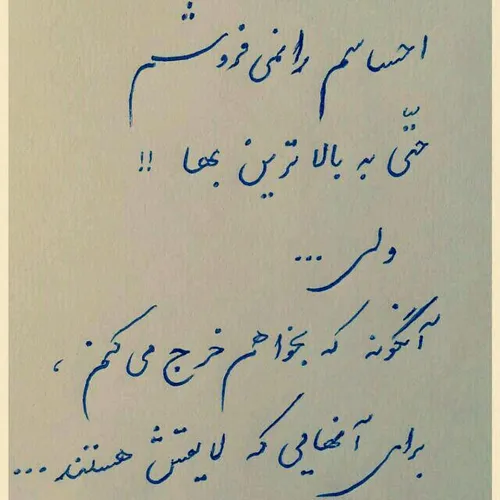 احساسم را نمی فروشم
حتّی به بالاترین بها !!
ولی ...
آنگونه که بخواهم خرج می کنم ،
برای آنهایی که لایقش هستند ...